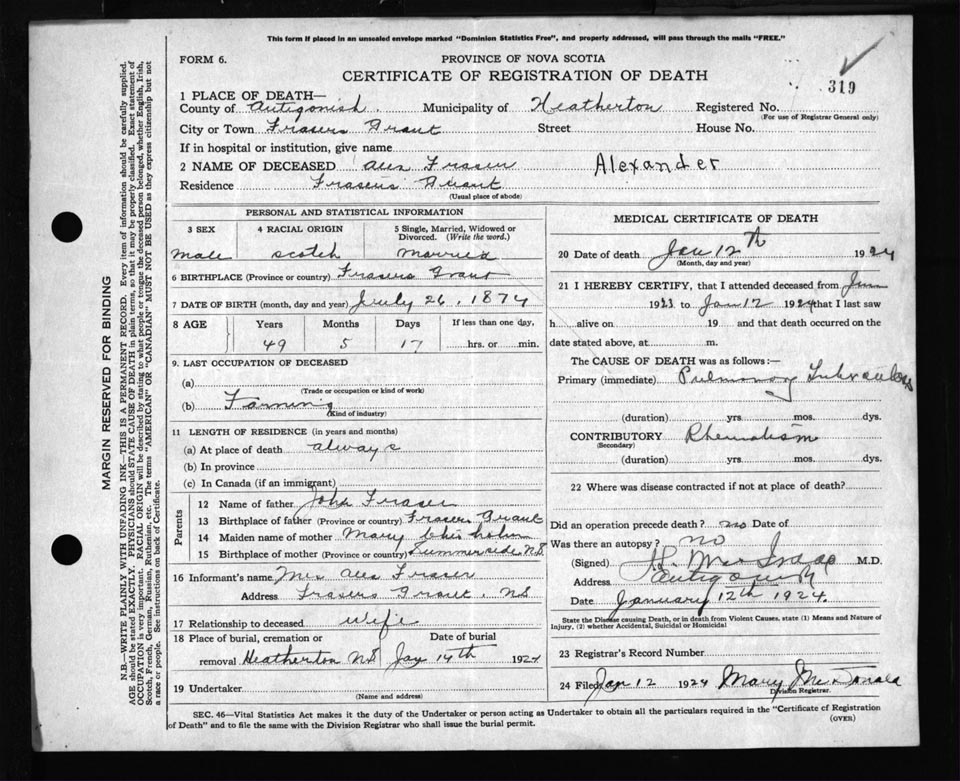 This form if placed in an unsealed envelope marked "Dominion Statistics Free", and properly addressed, will pass through the mails "FREE."
FORM 6.
PROVINCE OF NOVA SCOTIA
CERTIFICATE OF REGISTRATION OF DEATH
319
1 PLACE OF DEATH—
County of Antigonish Municipality of Heatherton Registered No.
(For use of Registrar General only)
City or Town Frasers Grant Street House No.
If in hospital or institution, give name
2 NAME OF DECEASED Alex Fraser Alexander
Residence Frasers Grant
(Usual place of abode)
PERSONAL AND STATISTICAL INFORMATION
3 SEX 4 RACIAL ORIGIN 5 Single, Married, Widowed or Divorced. (Write the word.)
Male Scotch Married
6 BIRTHPLACE (Province or country) Frasers Grant
7 DATE OF BIRTH (month, day and year) July 26, 1874
8 AGE Years Months Days If less than one day,
49 5 17 hrs. or min.
9. LAST OCCUPATION OF DECEASED
(a)
(Trade or occupation or kind of work)
(b) Farming
(Kind of industry)
11 LENGTH OF RESIDENCE (in years and months)
(a) At place of death always
(b) In province
(c) In Canada (if an immigrant)
Parents
12 Name of father John Fraser
13 Birthplace of father (Province or country) Frasers Grant
14 Maiden name of mother Mary Chisholm
15 Birthplace of mother (Province or country) Summerside N.S.
16 Informant's name Mrs Alex Fraser
Address Frasers Grant, NS
17 Relationship to deceased Wife
18 Place of burial, cremation or removal Heatherton NS Date of burial Jan 14th 1924
19 Undertaker
(Name and address)
MEDICAL CERTIFICATE OF DEATH
20 Date of death Jan 12th 1924
(Month, day and year)
21 I HEREBY CERTIFY, that I attended deceased from
1923 to Jan 12 1924 that I last saw
h alive on 19 and that death occurred on the
date stated above, at m.
The CAUSE OF DEATH was as follows:—
Primary (immediate) Pulmonary Tuberculosis
(duration) yrs. mos. dys.
CONTRIBUTORY Rheumatism
(Secondary)
(duration) yrs. mos. dys.
22 Where was disease contracted if not at place of death?
Did an operation precede death? no Date of
Was there an autopsy? no
(Signed) M.D.
Address Antigonish
Date January 12th 1924.
State the Disease causing Death, or in death from Violent Causes, state (1) Means and Nature of Injury, (2) whether Accidental, Suicidal or Homicidal
23 Registrar's Record Number
24 Filed Jan 12 1924 Mary McDonald
Division Registrar.
SEC. 46—Vital Statistics Act makes it the duty of the Undertaker or person acting as Undertaker to obtain all the particulars required in the "Certificate of Registration
of Death" and to file the same with the Division Registrar who shall issue the burial permit.
(OVER)
MARGIN RESERVED FOR BINDING
N.B.—WRITE PLAINLY WITH UNFADING INK—THIS IS A PERMANENT RECORD. Every item of information should be carefully supplied.
AGE should be stated EXACTLY. PHYSICIANS should STATE CAUSE OF DEATH in plain terms, so that it may be properly classified. Exact statement of
OCCUPATION is very important. RACIAL ORIGIN will be described by stating to what people or tongue the deceased person belonged, whether English, Irish,
Scotch, French, German, Russian, Ruthenian, etc. The terms "AMERICAN" OR "CANADIAN" MUST NOT BE USED as they express citizenship but not
a race or people. See instructions on back of Certificate.